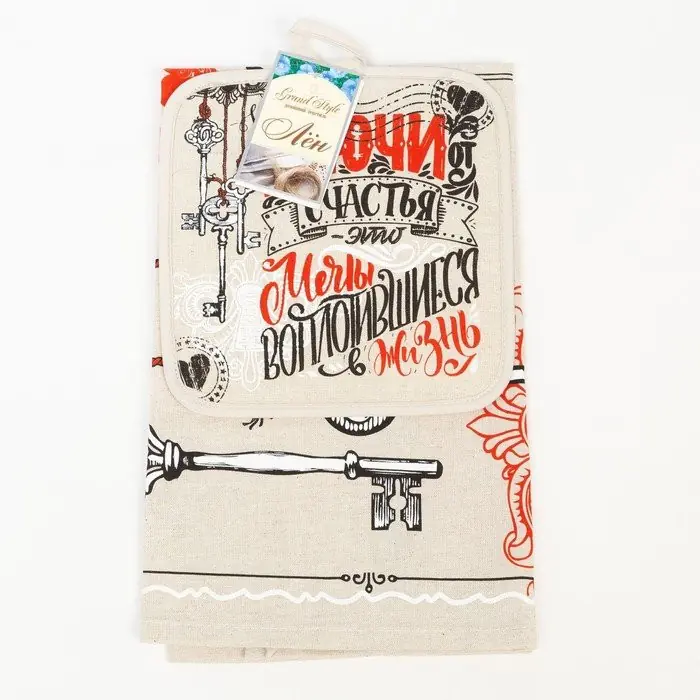 Grand Style
Лён
ЮЧИ ОТ
СЧАСТЬЯ
-это
Мечты
ВОПЛОТИВШИЕСЯ
в жизнь